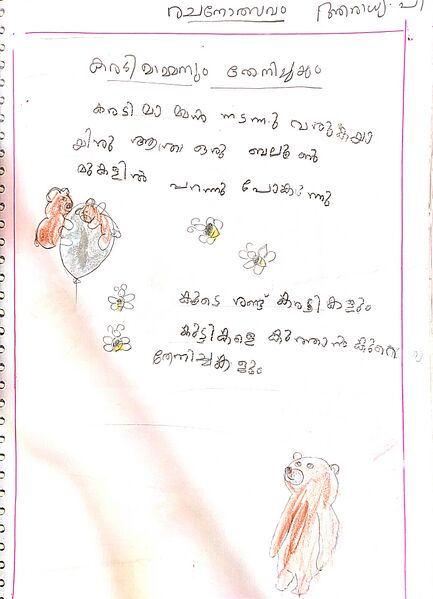 രചനോത്സവം ആരാധ്യ. പി
കരടിമാമ്മനും തേനീച്ചക്കും
കരടി മാ മ്മൻ നടന്നു വരുകയാ
യിരു ഒരു ബലൂൺ
മുകളിൽ പറന്നു പോകുന്നു
കൂടെ രണ്ട് കരടി കളും
കുട്ടികളെ കുത്താൻ കുറെ
തേനീച്ചക്ക ളും